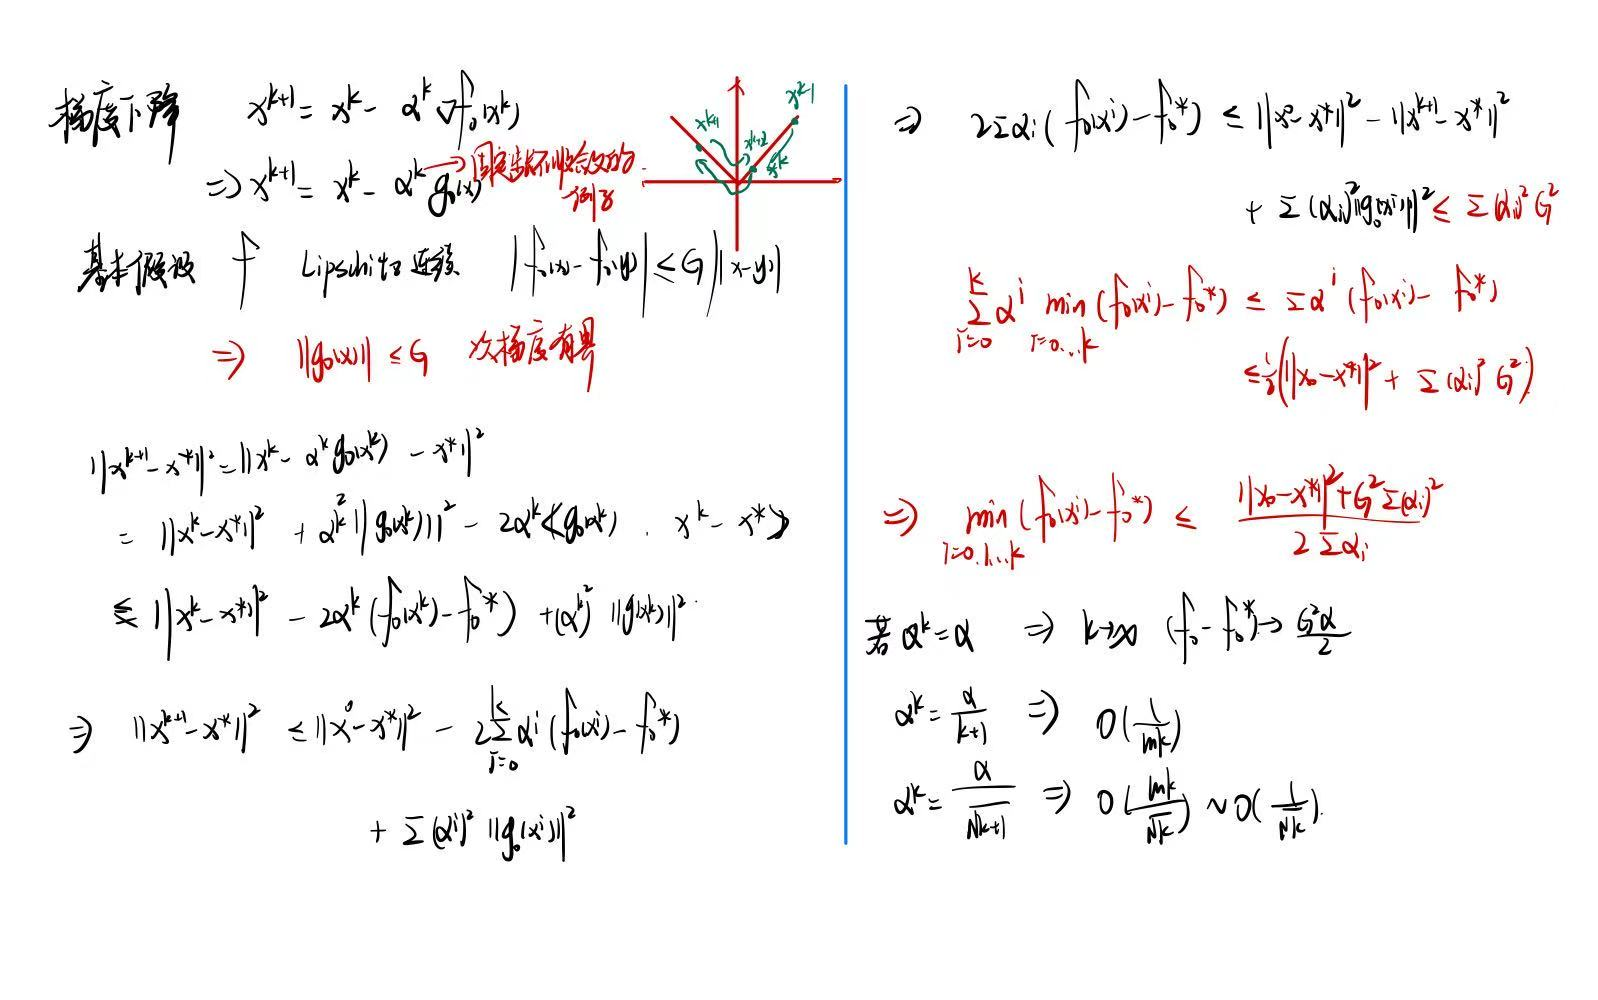 梯度下降 x^{k+1} = x^k - α^k ∇f_0(x^k)
⇒ x^{k+1} = x^k - α^k g_0(x) → 固定步长不收敛的
例子
x^{k+1} x^{k+2} x^{k-1} x^k
基本假设 f Lipschitz 连续 |f_0(x) - f_0(y)| ≤ G||x-y||
⇒ ||g_0(x)|| ≤ G 次梯度有界
||x^{k+1} - x^*||^2 = ||x^k - α^k g_0(x^k) - x^*||^2
= ||x^k - x^*||^2 + α^{k2} ||g_0(x^k)||^2 - 2α^k <g_0(x^k), x^k - x^*>
≤ ||x^k - x^*||^2 - 2α^k (f_0(x^k) - f_0^*) + (α^k)^2 ||g(x^k)||^2
⇒ ||x^{k+1} - x^*||^2 ≤ ||x^0 - x^*||^2 - 2Σ_{i=0}^k α^i (f_0(x^i) - f_0^*)
+ Σ(α^i)^2 ||g_0(x^i)||^2
⇒ 2Σα_i (f_0(x^i) - f_0^*) ≤ ||x^0 - x^*||^2 - ||x^{k+1} - x^*||^2
+ Σ(α_i)^2 ||g_0(x^i)||^2 ≤ Σ(α_i)^2 G^2
Σ_{i=0}^k α^i min_{i=0...k} (f_0(x^i) - f_0^*) ≤ Σα^i (f_0(x^i) - f_0^*)
≤ 1/2 (||x_0 - x^*||^2 + Σ(α_i)^2 G^2)
⇒ min_{i=0,1...k} (f_0(x^i) - f_0^*) ≤ (||x_0 - x^*||^2 + G^2 Σ(α_i)^2) / (2Σα_i)
若 α^k = α ⇒ k→∞ (f_0 - f_0^*) → G^2α/2
α^k = α/(k+1) ⇒ O(1/lnk)
α^k = α/√(k+1) ⇒ O(lnk/√k) ~ O(1/√k).